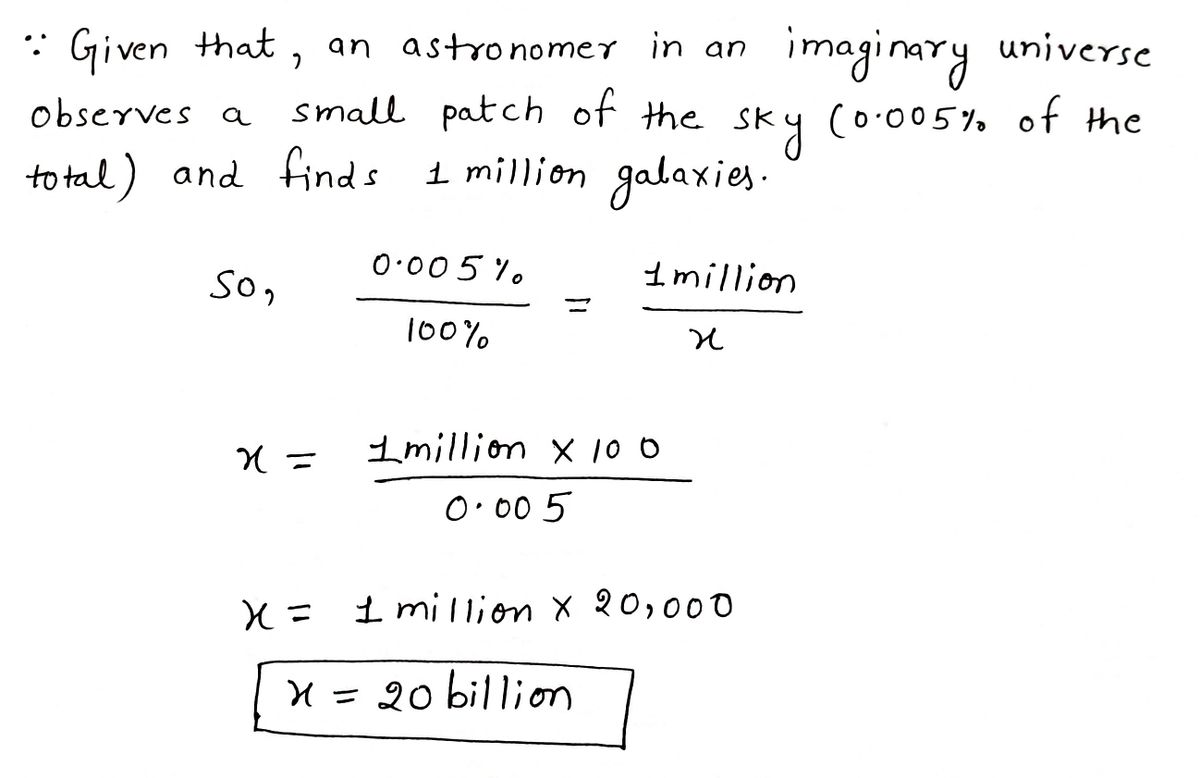 ∵ Given that, an astronomer in an imaginary universe
observes a small patch of the sky (0.005% of the
total) and finds 1 million galaxies.
So, 0.005% / 100% = 1 million / x
x = 1 million × 100 / 0.005
x = 1 million × 20,000
x = 20 billion